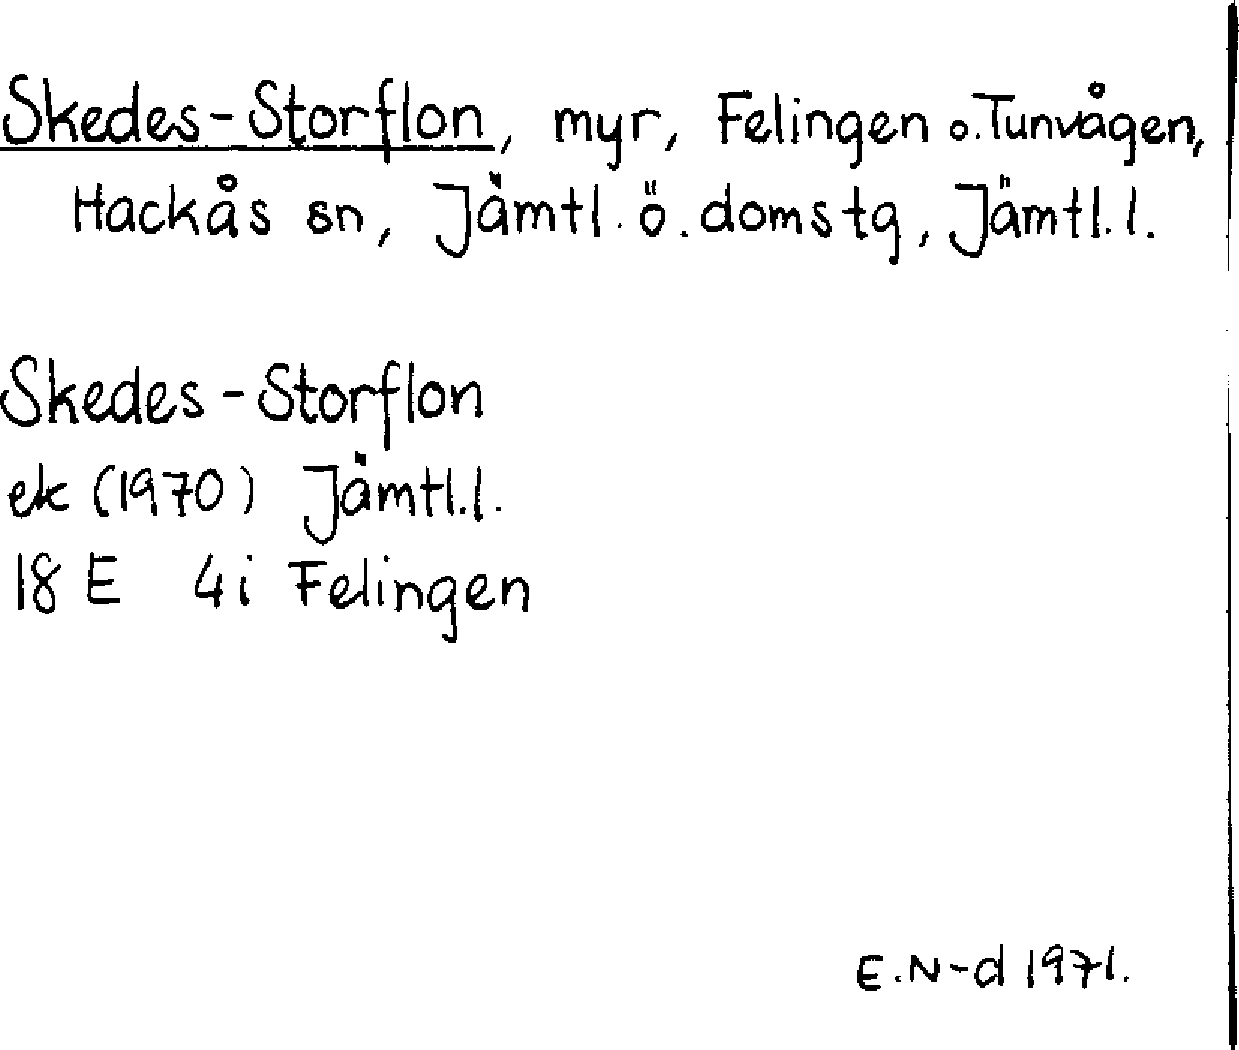 Skedes-Storflon, myr, Felingen o. Tunvågen,
Hackås sn, Jämtl. ö. domstg, Jämtl. l.
Skedes-Storflon
ek (1970) Jämtl. l.
18 E 4i Felingen
E. N-d 1971.